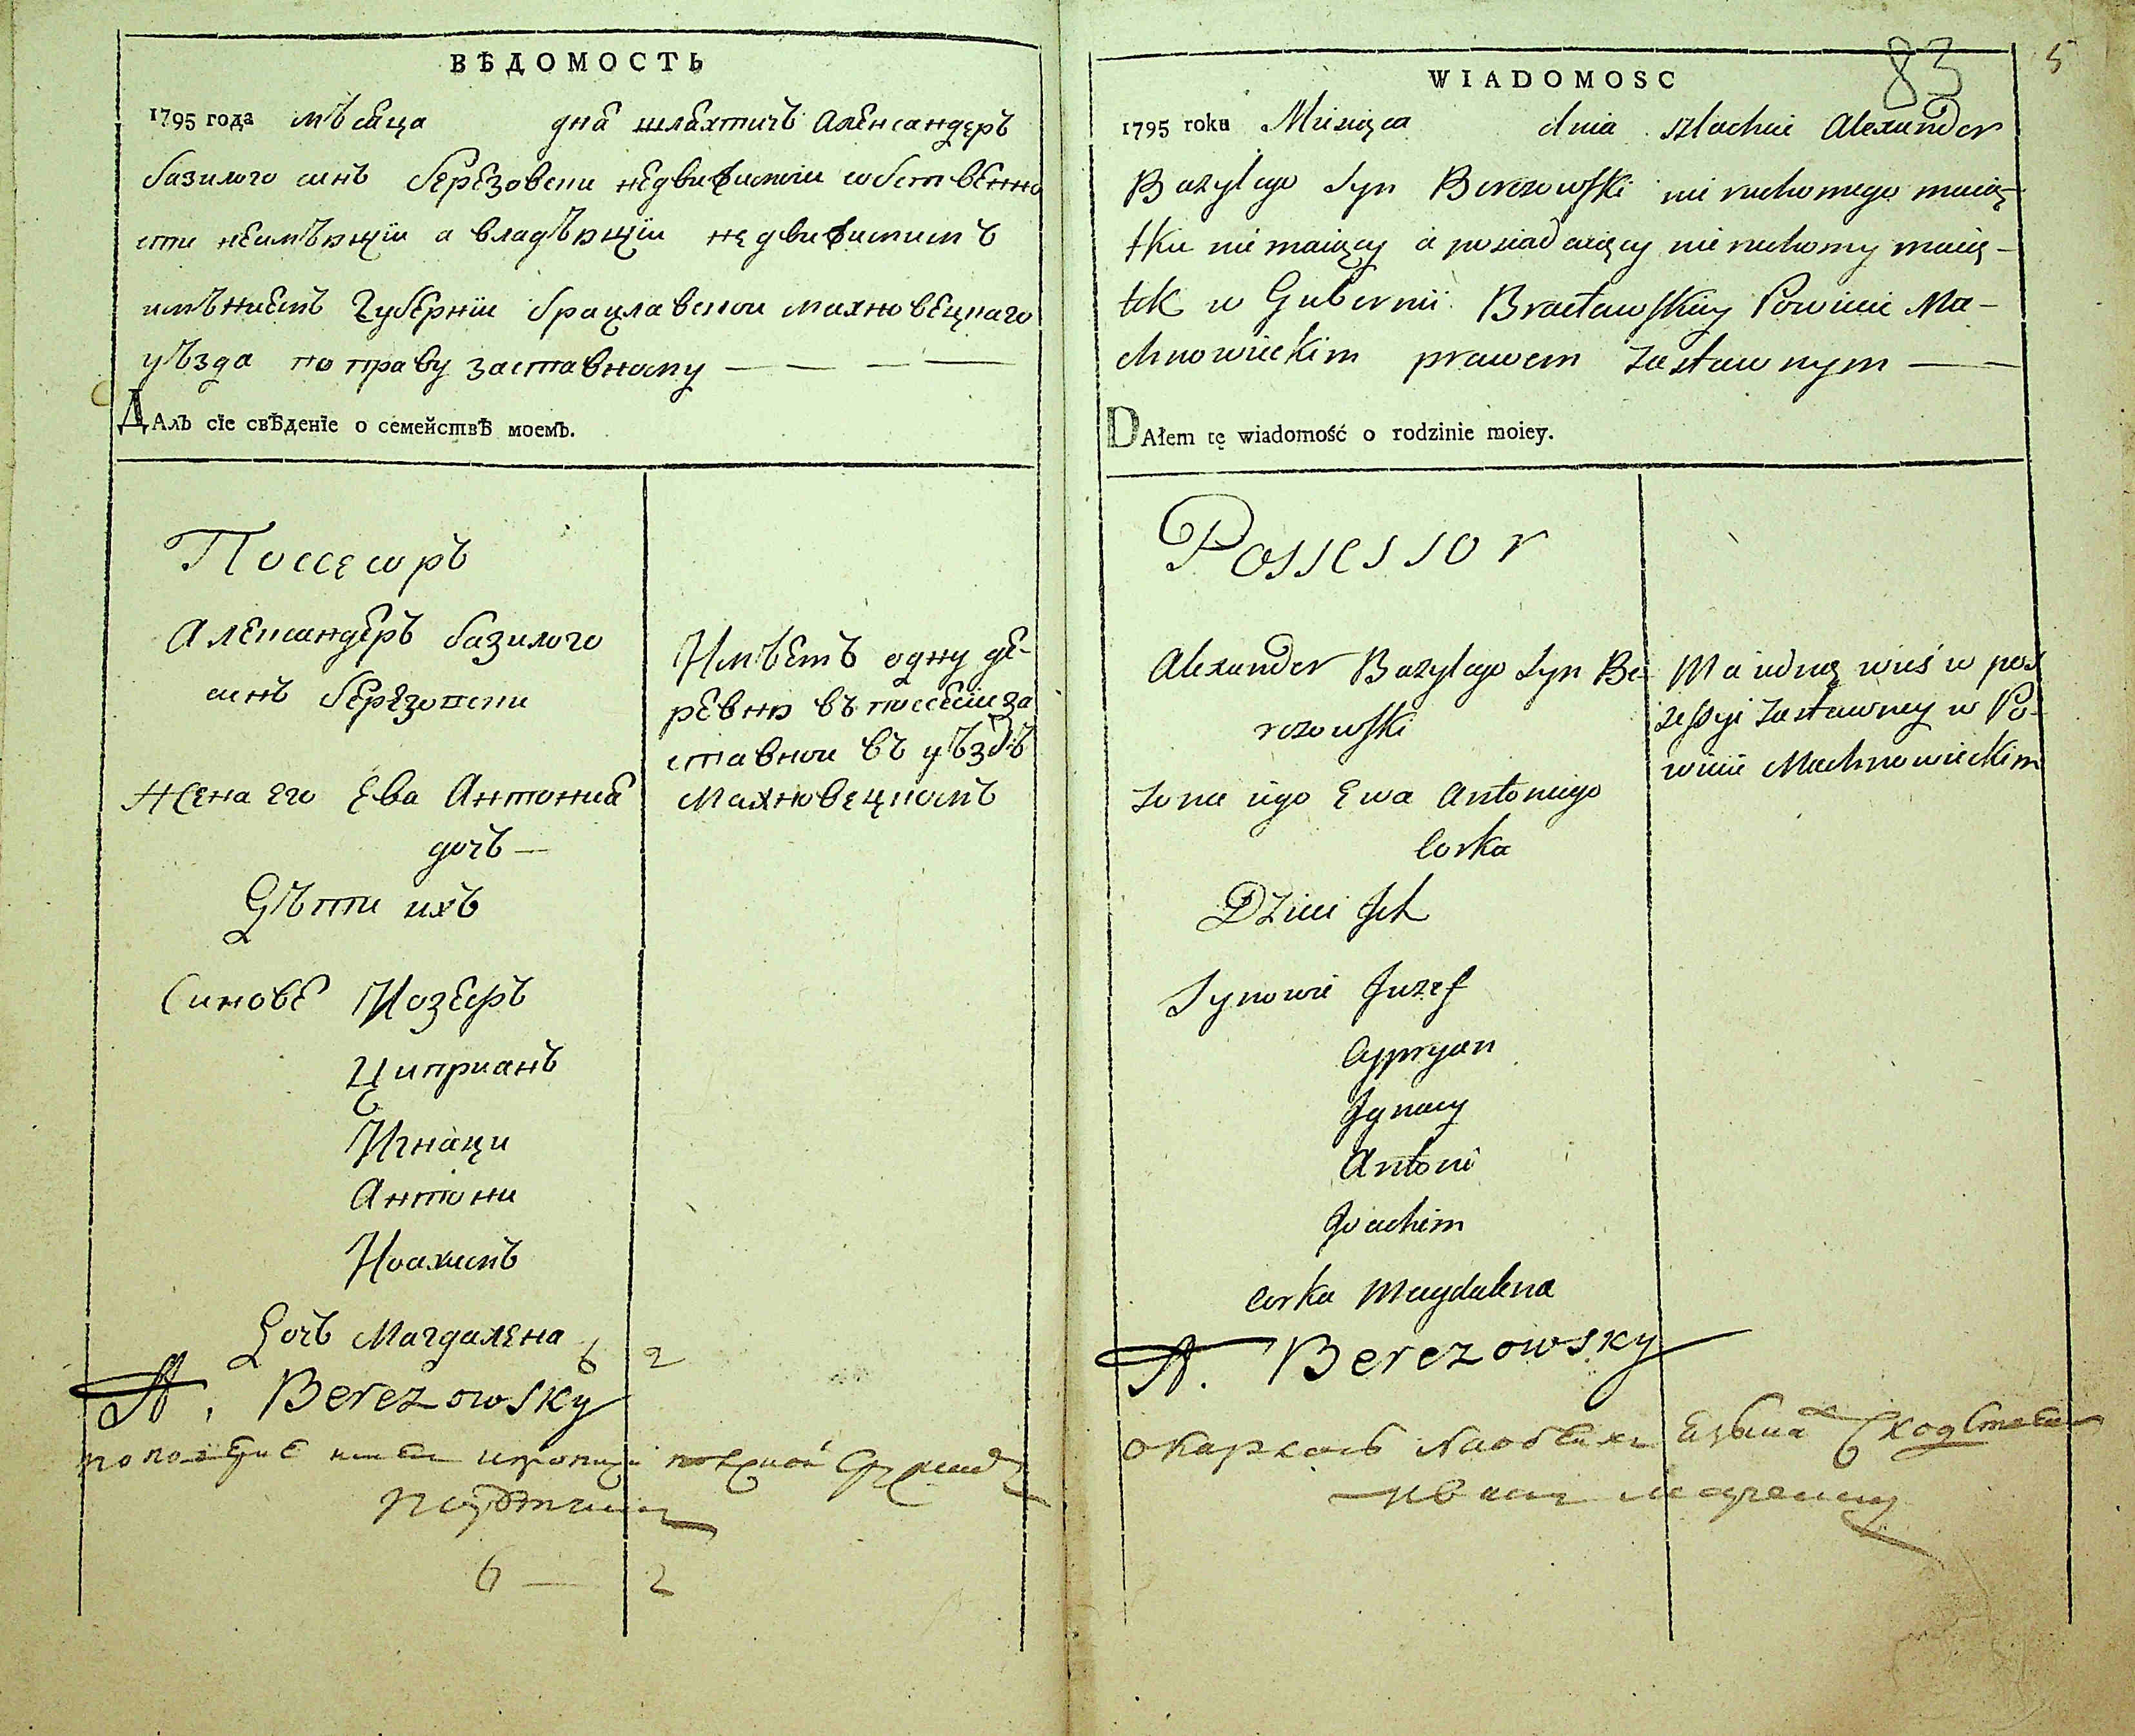 ВѢДОМОСТЬ
1795 года мѣсяца дня шляхтичъ Александеръ
базилого синъ березовски недвижимои собственно
сти неимѣющіи а владѣющіи недвижимимъ
имѣниемъ Губерніи брацлавскои махновецкаго
уѣзда по праву заставному — — — —
ДАлъ сїе свѣденїе о семействѣ моемъ.
Поссесоръ
Александеръ базилого
синъ березовски
Жена его Ева Антониа
дочъ —
Дѣти ихъ
Синовѣ Иозефъ
Циприанъ
Игнаци
Антони
Иоахимъ
Дочъ Магдалена 6 2
A. Berezowsky
6 — 2
Имѣетъ одну де-
ревню въ поссесіи за
ставнои въ уѣздѣ
Махновецкомъ
83 5
WIADOMOSC
1795 roku Miesiąca dnia szlachcic Alexander
Bazylego Syn Berezowski nie ruchomego maią-
tku nie maiący a posiadaiący nie ruchomy maią-
tek w Gubernii Bracławskiey Powiecie Ma-
chnowieckim prawem zastawnym — —
DAłem tę wiadomość o rodzinie moiey.
Possessor
Alexander Bazylego Syn Be-
rezowski
Zona iego Ewa Antoniego
Corka
Dzieci Ich
Synowie Juzef
Cypryan
Ignacy
Antoni
Joachim
Corka Magdalena
A. Berezowsky
Ma iedną wieś w pos
sessyi zastawney w Po-
wiecie Machnowieckim